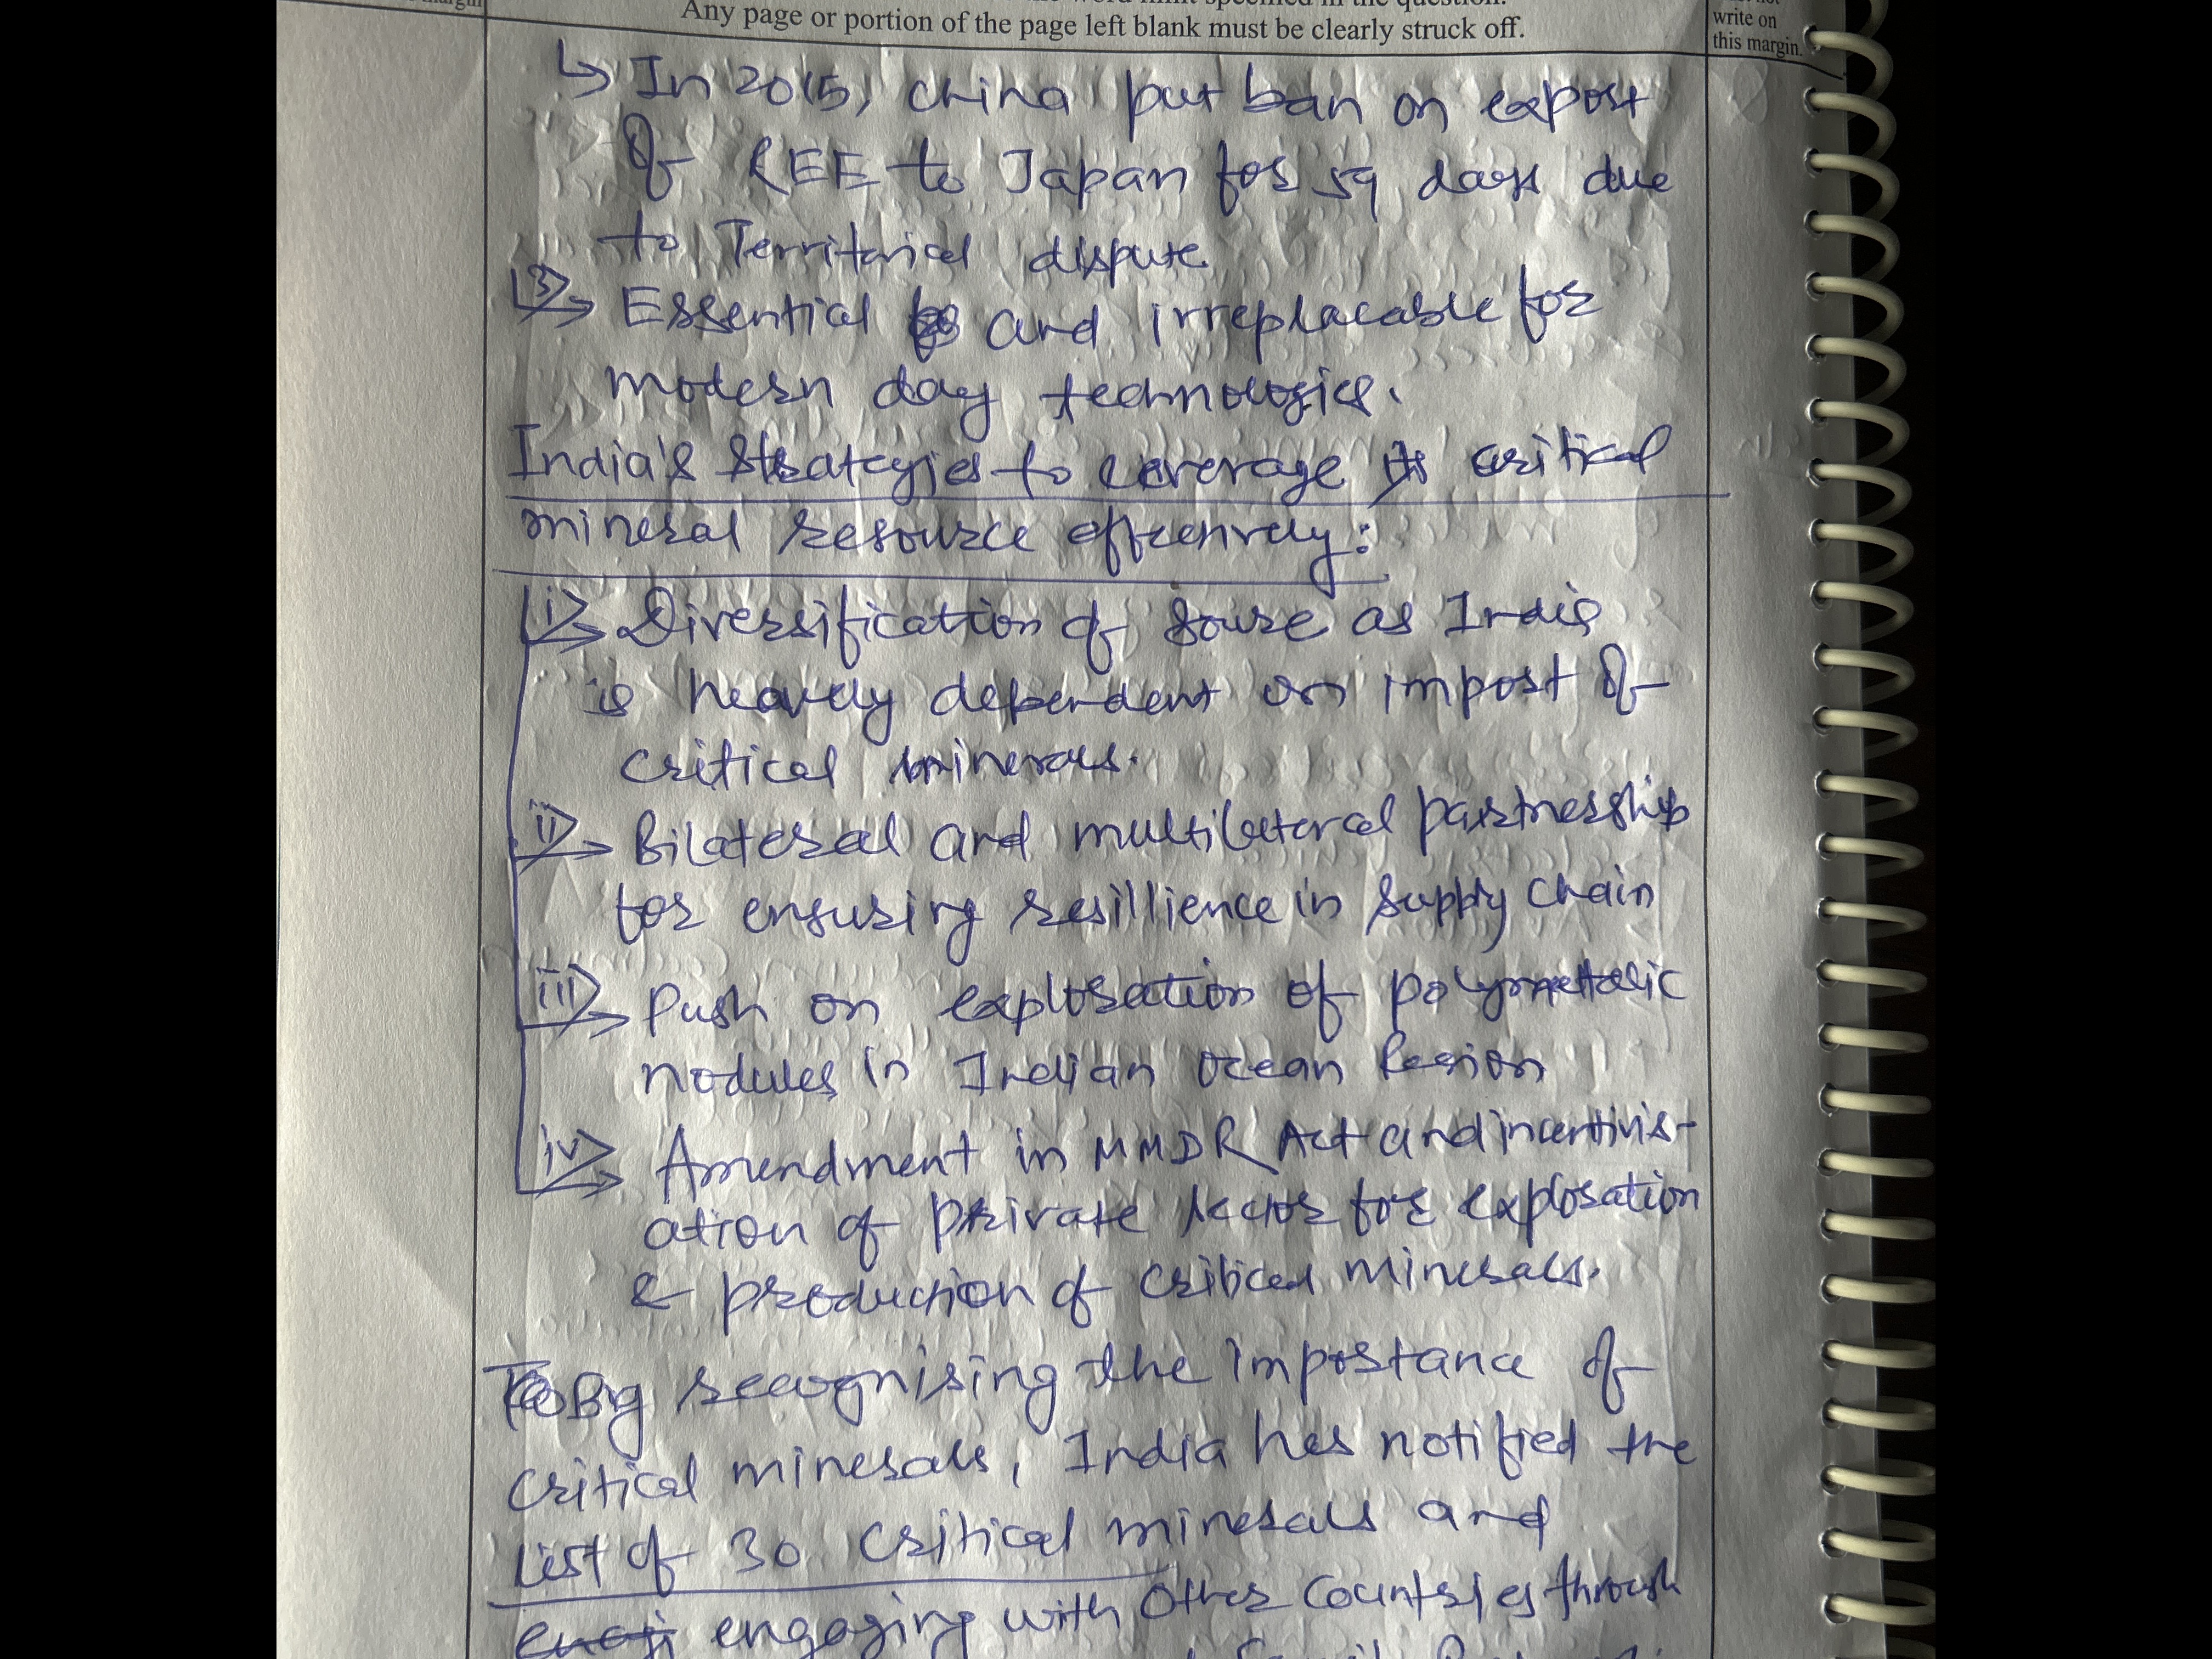 Any page or portion of the page left blank must be clearly struck off.
write on
this margin.
↳ In 2015, China put ban on export
of REE to Japan for 59 days due
to Territorial dispute
3 Essential and irreplacable for
modern day technologies.
India's strategies to leverage its critical
mineral resource effectively:
i) Diversification of sourse as India
is heavily dependent on import of
critical minerals.
ii) Bilateral and multilateral partnership
for ensuring resillience in supply chain
iii) Push on exploration of polymetallic
nodules in Indian Ocean Region
iv) Amendment in MMDR Act and incentivis-
ation of private sector for exploration
& production of critical minerals.
By recognising the importance of
critical minerals, India has notified the
list of 30 critical minerals and
engaging with other countries through